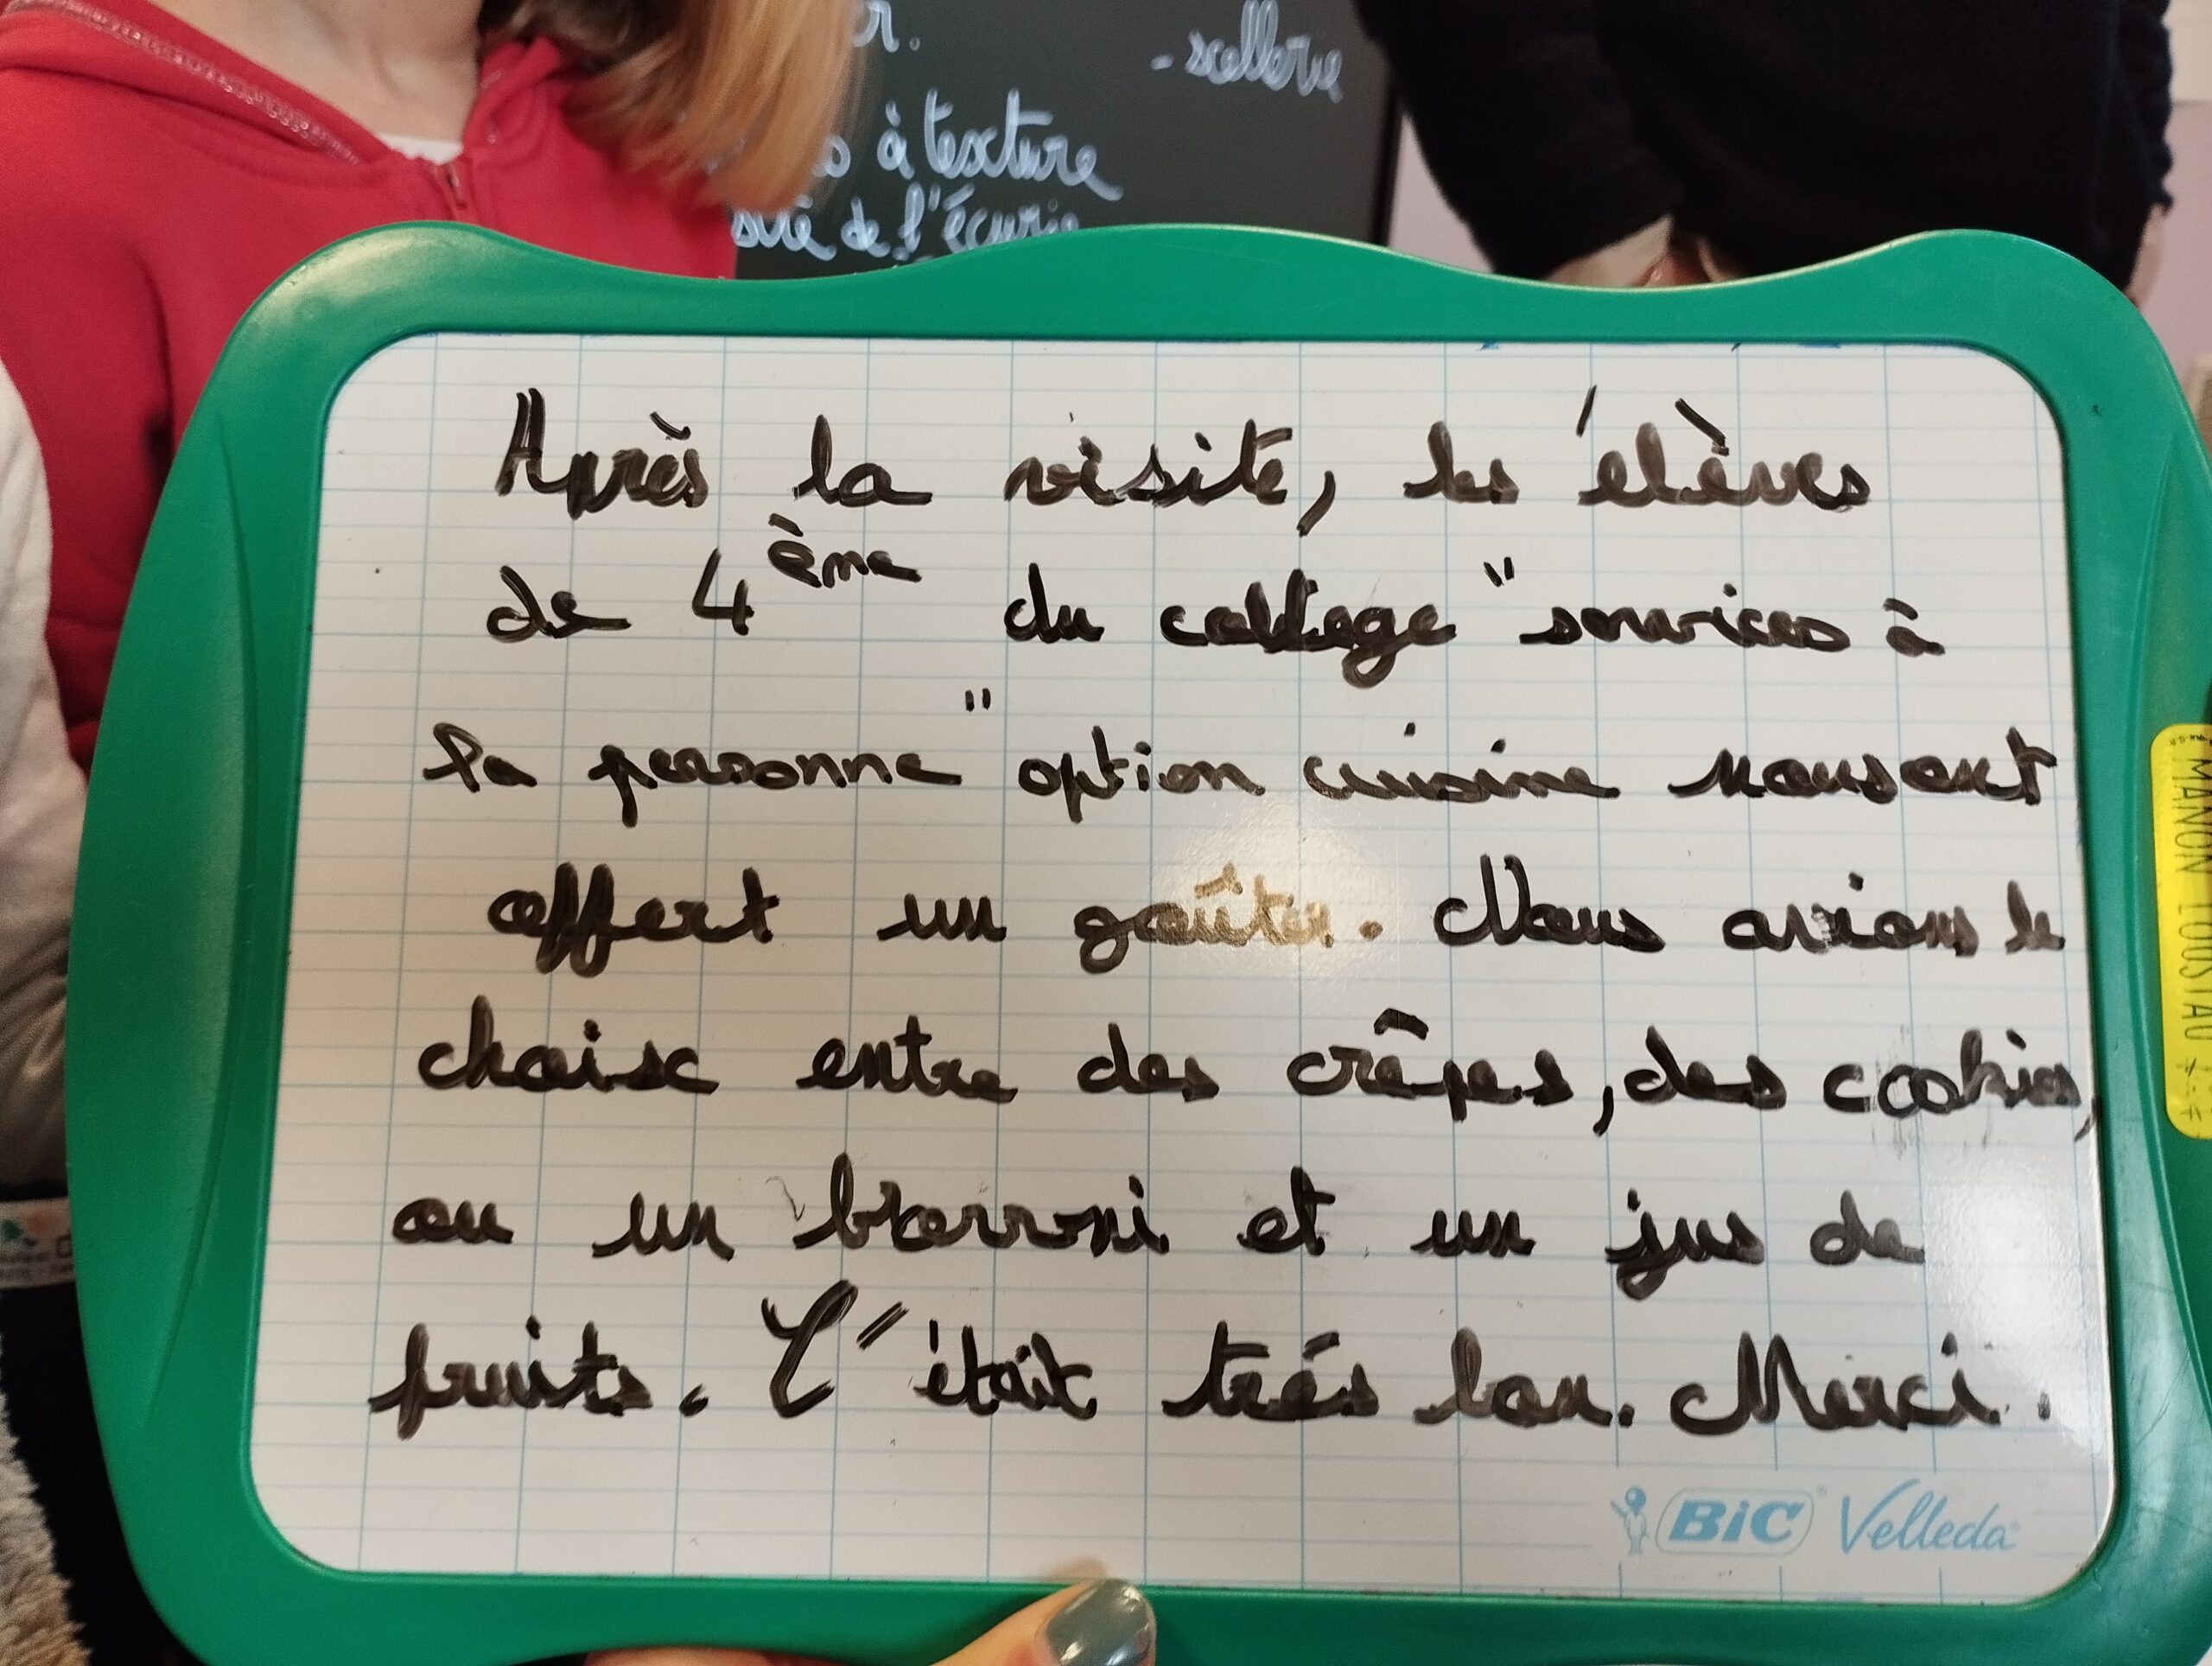 r.
- scellerie
à texture
sité de l'écurie
Après la visite, les élèves
de 4ème du collège "services à
la personne" option cuisine nous ont
offert un goûter. Nous avions le
choix entre des crêpes, des cookies,
ou un browni et un jus de
fruits. C'était trés bon. Merci.
BIC Velleda
MANON LOUSTAU